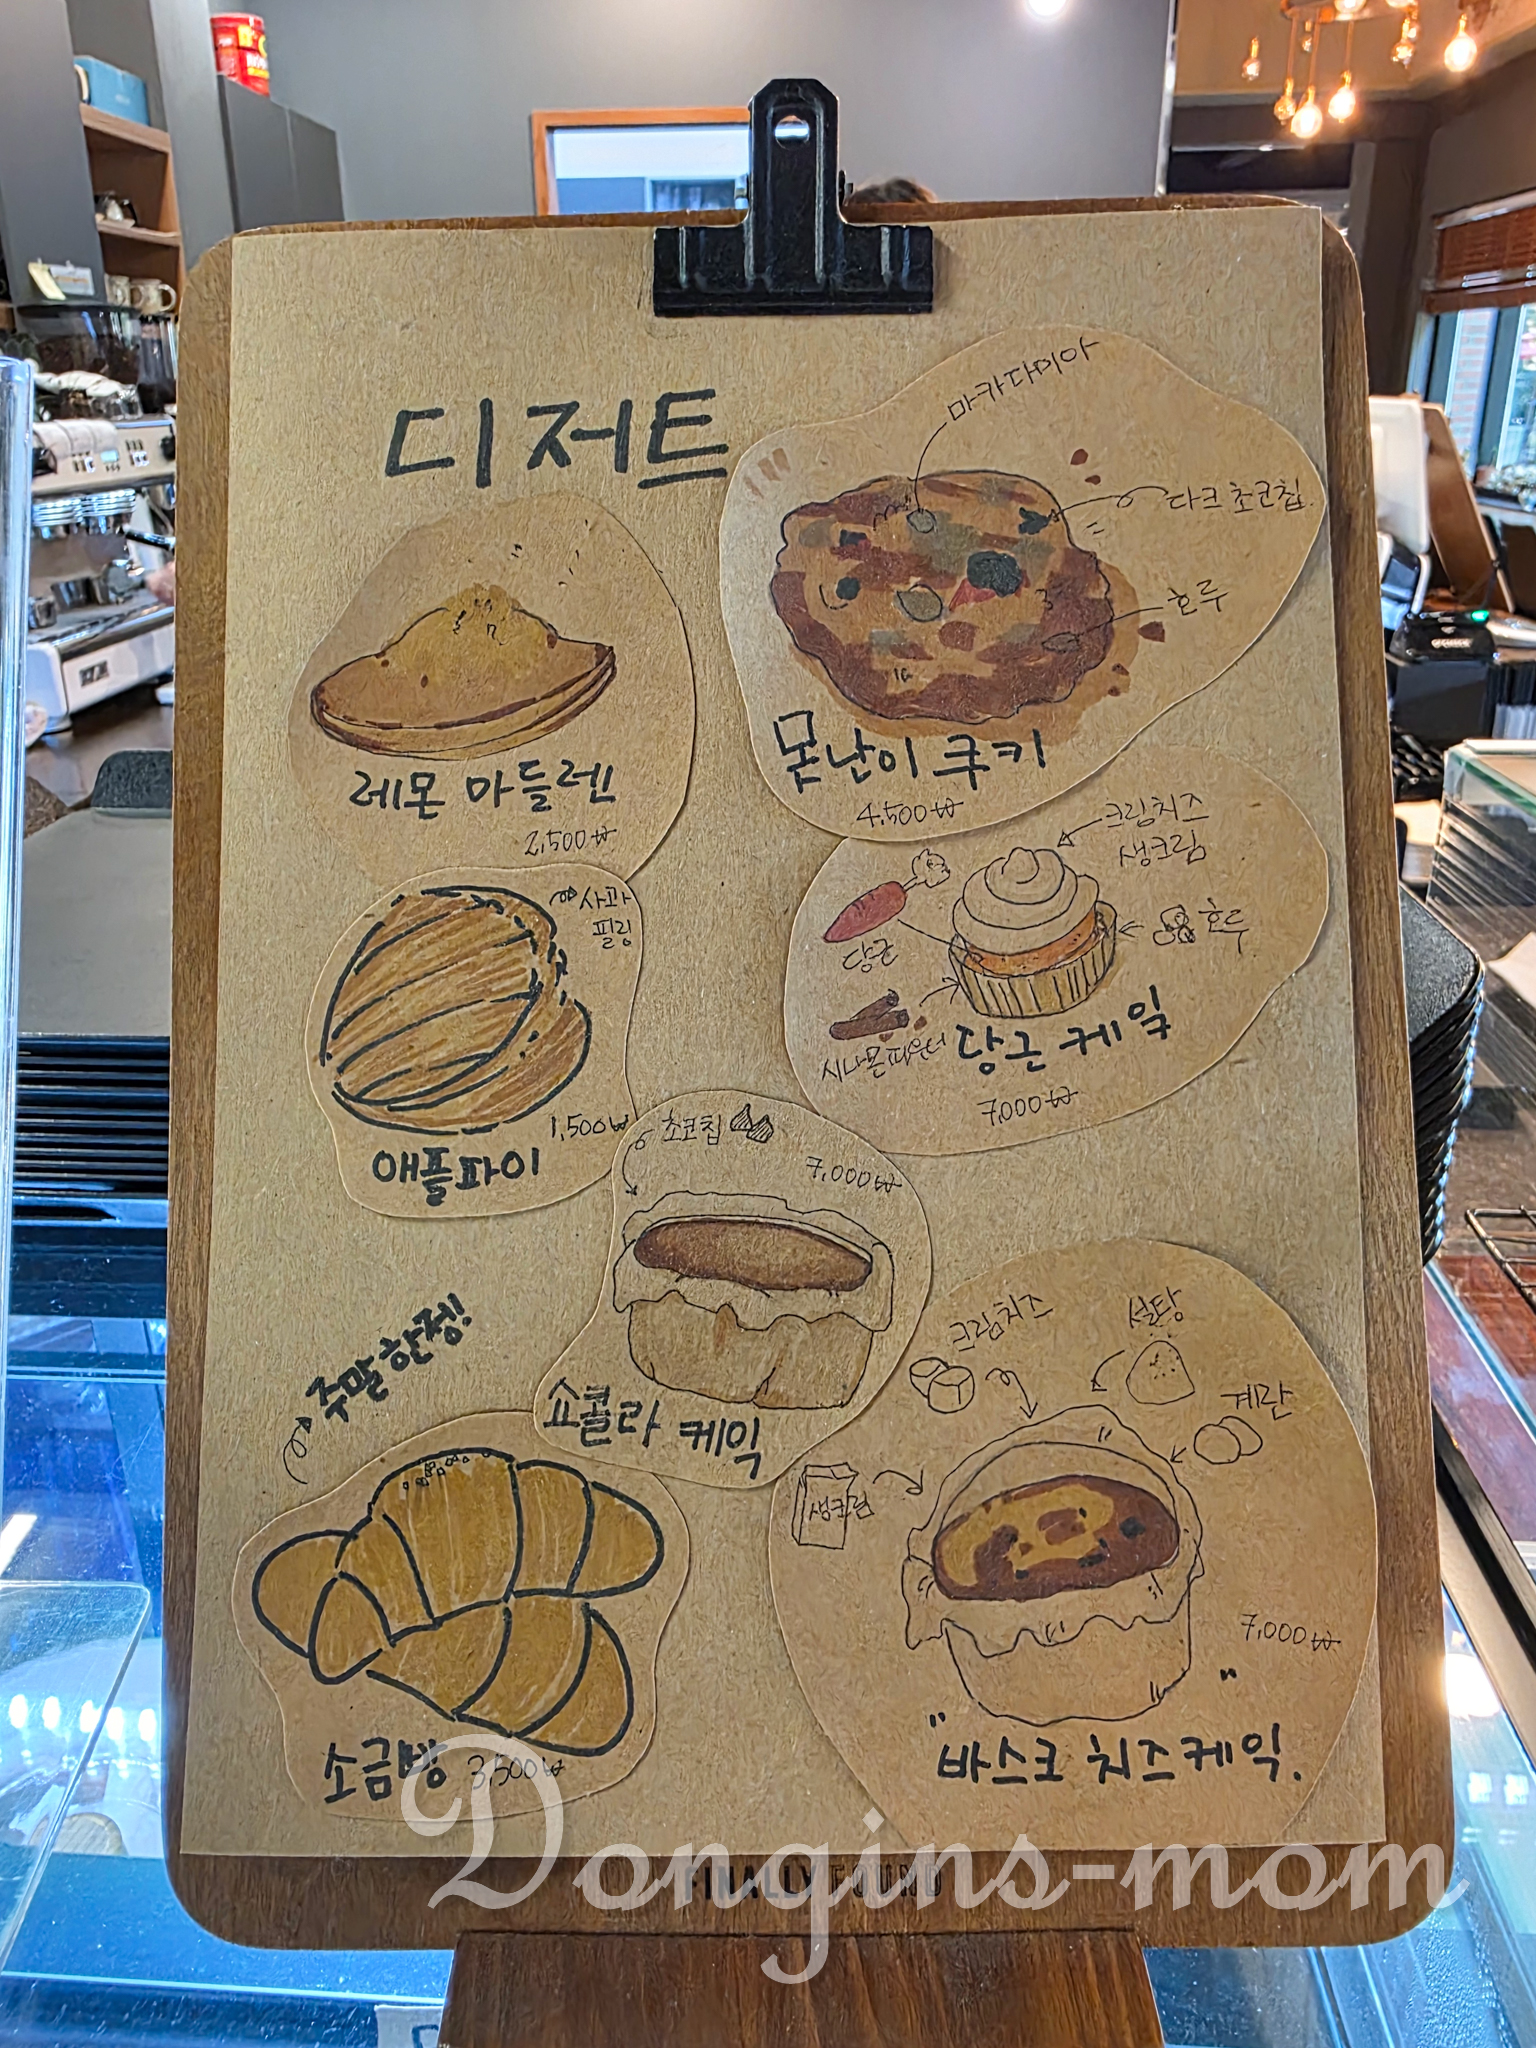 디저트
마카다미아
다크 초코칩
호두
못난이 쿠키
4,500₩
레몬 마들렌
2,500₩
크림치즈
생크림
호두
당근
시나몬파우더
당근 케잌
7,000₩
사과
필링
1,500₩
애플파이
초코칩
7,000₩
쇼콜라 케잌
주말한정!
소금빵 3,500₩
크림치즈
설탕
계란
생크림
7,000₩
"바스크 치즈케잌."
FINALLY FOUND
Dongins-mom